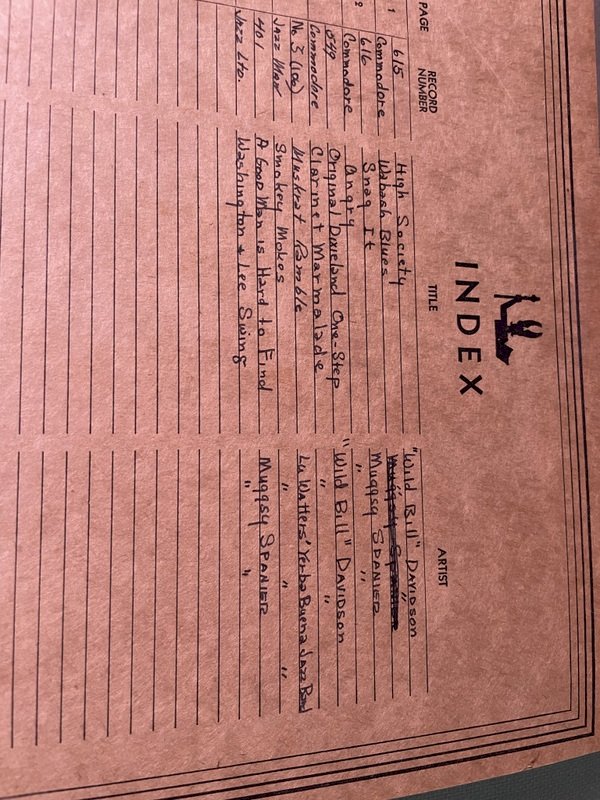 INDEX
PAGE RECORD NUMBER TITLE ARTIST
1 615 High Society "Wild Bill" DAVIDSON
Commodore Wabash Blues " "
2 616 Snag It Muggsy SPANIER
Commodore Angry " "
549 Original Dixieland One-Step "Wild Bill" DAVIDSON
Commodore Clarinet Marmalade " "
No 3 Muskrat Ramble Lu Watters' Yerba Buena Jazz Band
JAZZ MAN Smokey Mokes " " "
401 A Good Man is Hard to Find Muggsy SPANIER
JAZZ LTD. Washington & Lee Swing " "